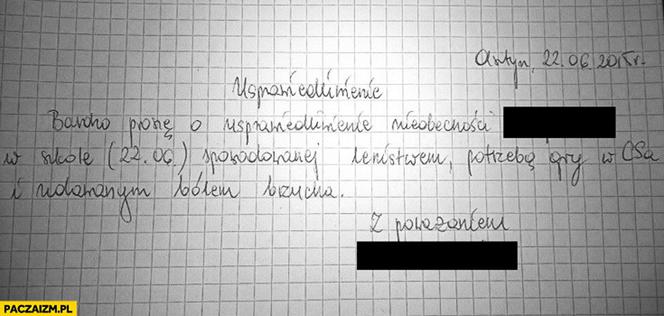 Antyn, 22.06.2015r.
Usprawiedliwienie
Bardzo proszę o usprawiedliwienie nieobecności
w szkole (22.06.) spowodowanej lenistwem, potrzebą gry w CSa
i udawanym bólem brzucha.
Z poważaniem
PACZAIZM.PL